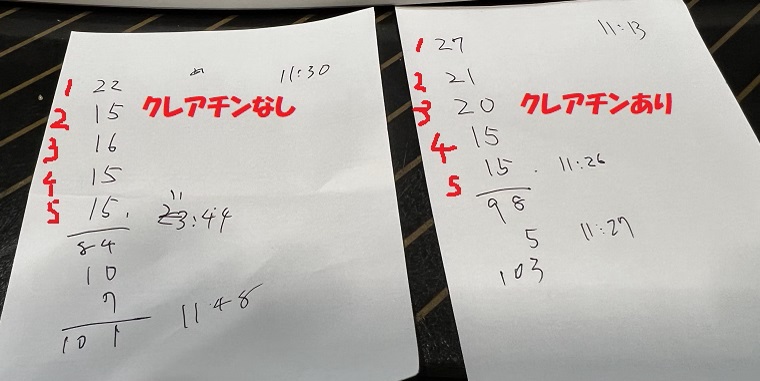 11:30
1 22
クレアチンなし
2 15
3 16
4 15
5 15. 11:44
84
10
7
101 11:48
11:13
1 27
2 21
クレアチンあり
3 20
4 15
5 15. 11:26
98
5 11:27
103